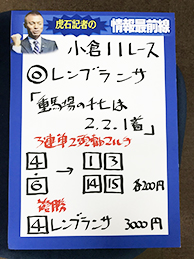 虎石記者の
情報最前線
小倉11レース
◎レンブランサ
「重馬場の千七は
2.2.1着」
3連単2頭軸マルチ
4 → 1 3
6 14 15 各200円
複勝
4 レンブランサ 3000円